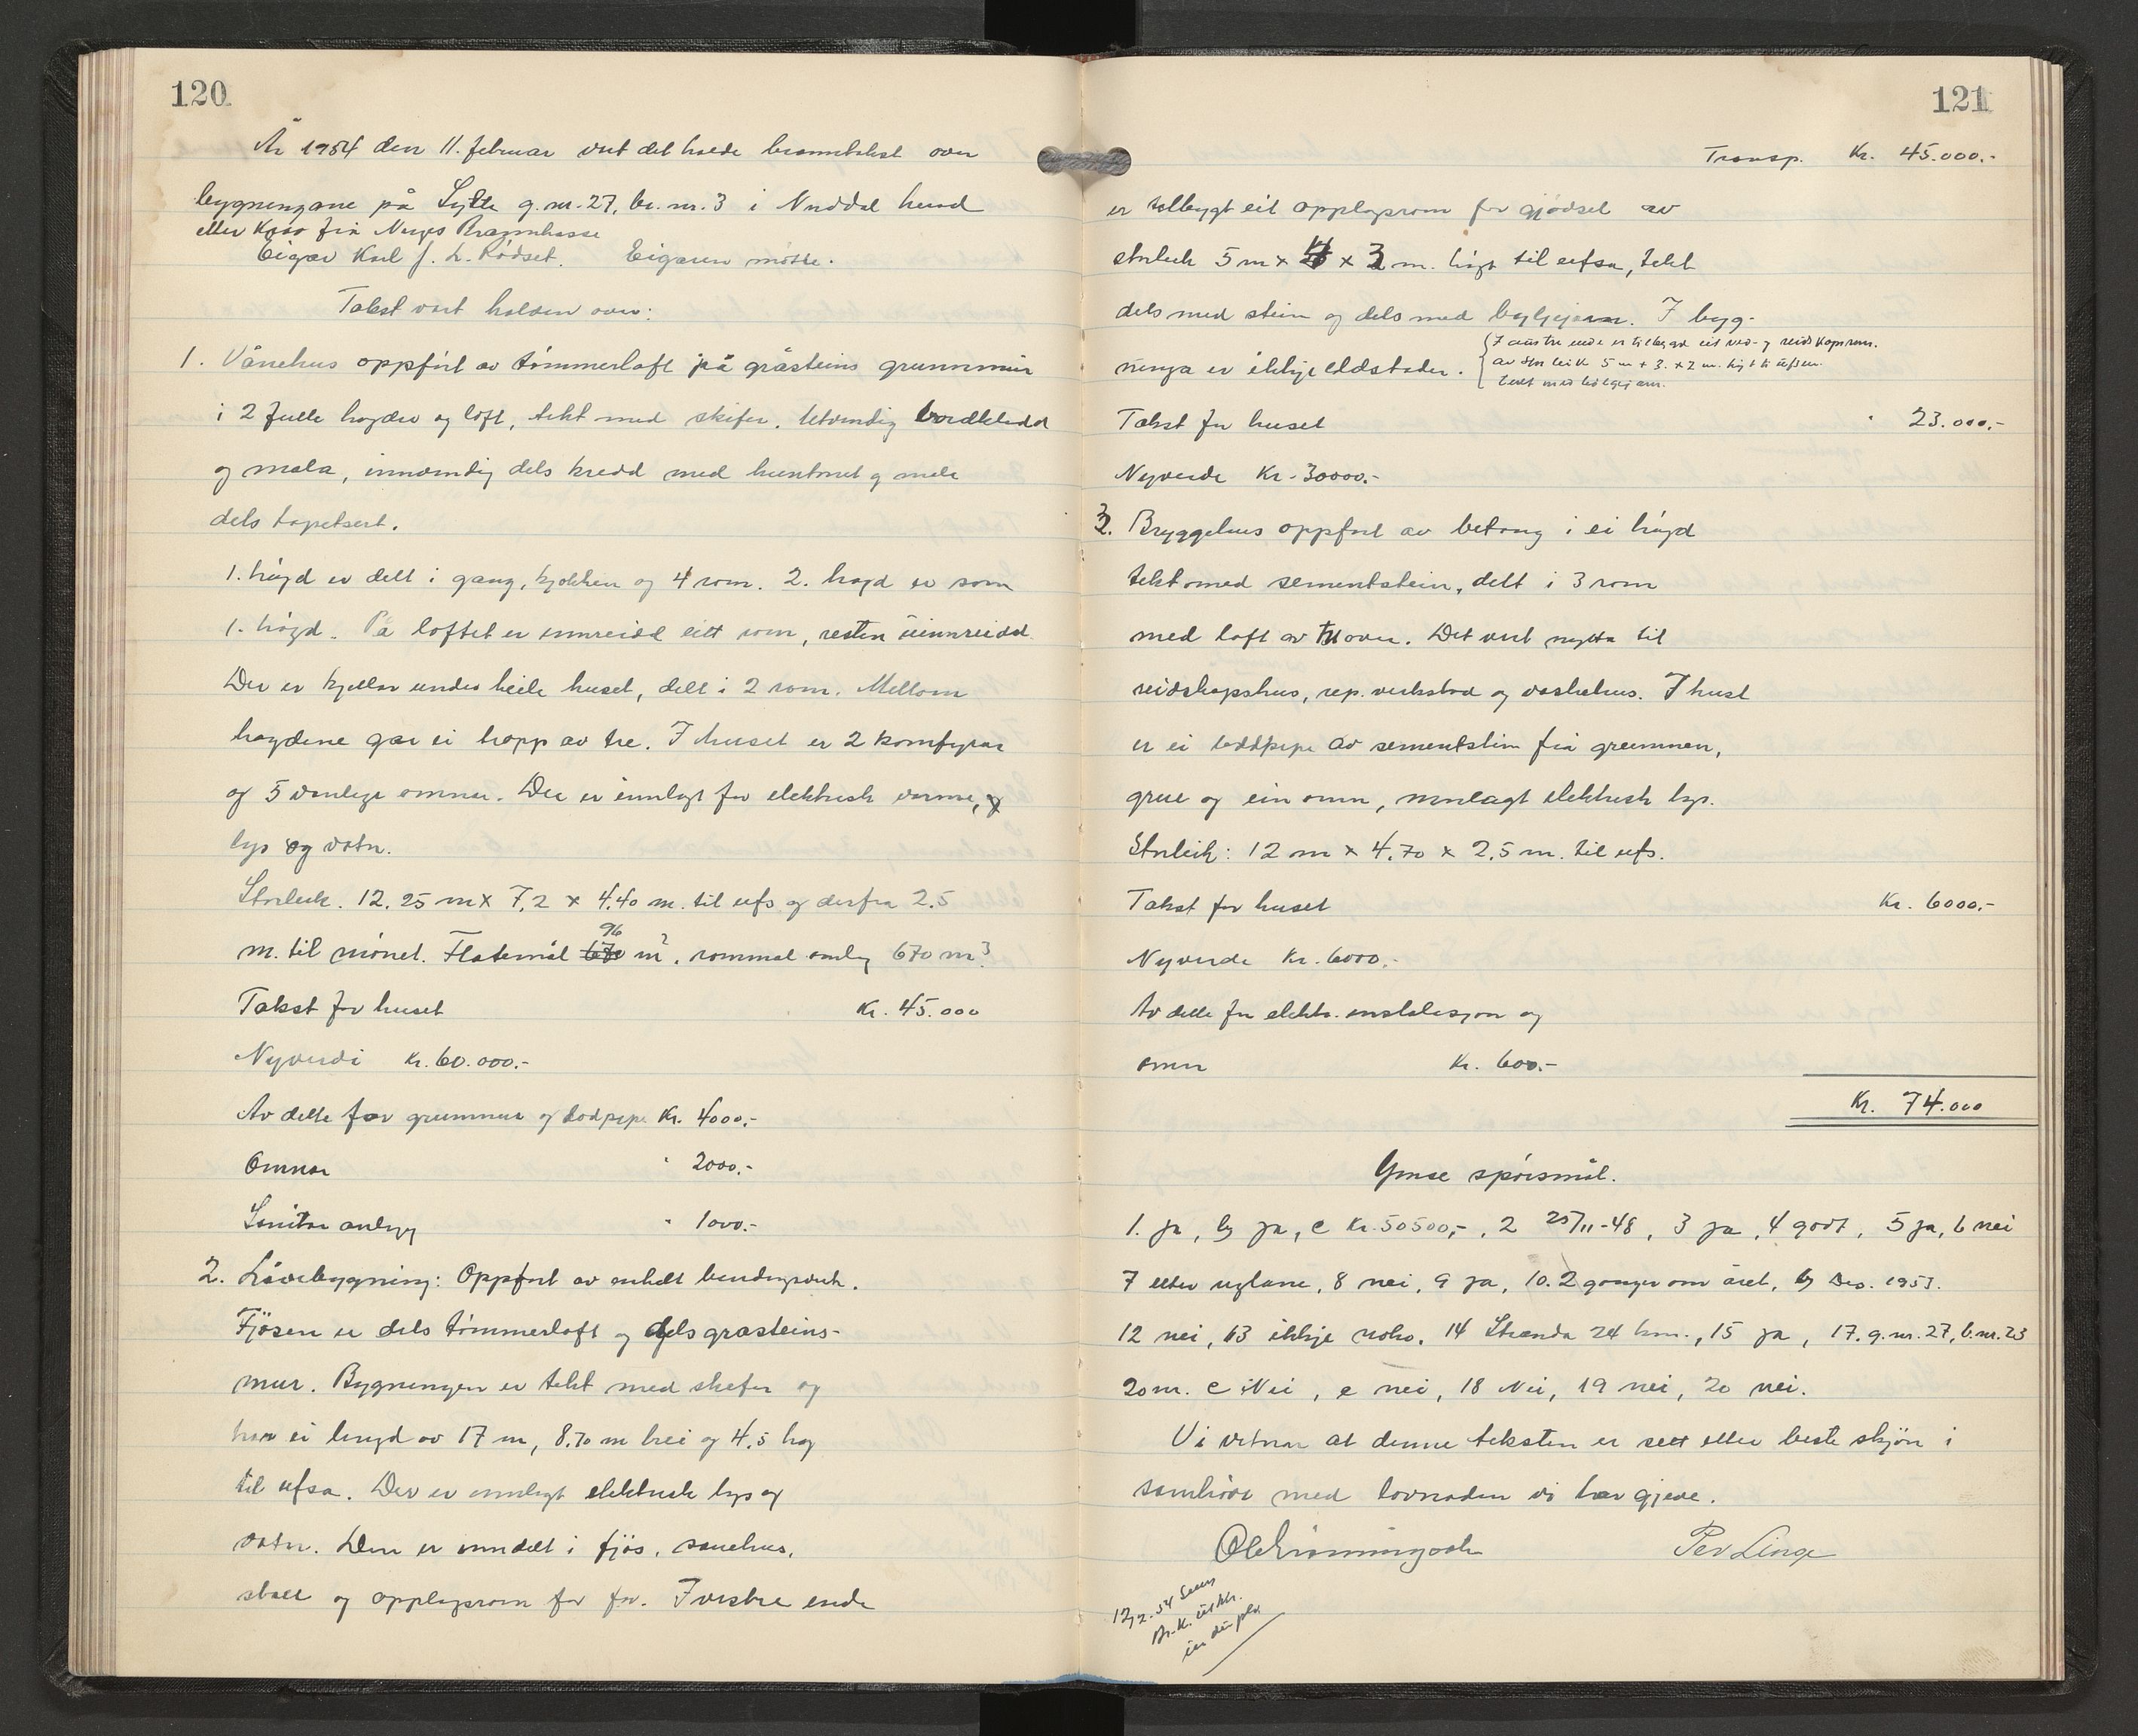 120
År 1954 den 11. februar vart det halde branntakst over
bygningane på Sylte g.nr. 27, br.nr. 3 i Norddal herad
etter krav frå Norges Brannkasse
Eigar Karl J. L. Rødset. Eigaren møtte.
Takst vart halden over:
1. Vånehus oppført av tømmerlaft på gråsteins grunnmur
i 2 fulle høgder og loft, tekt med skifer. Utvendig bordkledd
og mala, innvendig dels kredd med huntonit og mala
dels tapetsert.
1. høgd er delt i gang, kjøkken og 4 rom. 2. høgd er som
1. høgd. På loftet er innreidd eitt rom, resten uinnreidd.
Der er kjellar under heile huset, delt i 2 rom. Mellom
høgdene går ei trapp av tre. I huset er 2 komfyrar
og 5 vanlege omnar. Der er innlagt for elektrisk varme,
lys og vatn.
Storleik. 12.25 m x 7,2 x 4.40 m. til ufs og derfra 2.5
m. til mønet. Flatemål 670 96 m², rommål omlag 670 m³.
Takst for huset Kr. 45.000
Nyverdi Kr. 60.000.-
Av dette for grunnmur og lodpipe Kr. 4000.-
Omnar " 2000.-
Sanitær anlegg " 1000.-
2. Låvebygning: Oppført av enkelt bindingsverk.
Fjøsen er dels tømmerlaft og dels gråsteins-
mur. Bygningen er tekt med skifer og
har ei lengd av 17 m, 8.70 m brei og 4,5 høg
til ufsa. Der er innlagt elektrisk lys og
vatn. Den er inndelt i fjøs, sauehus,
stall og opplagsrom for for. I vestre ende
121
Transp. Kr. 45.000.-
er tilbygt eit opplagsrom for gjødsel av
storleik 5 m x 4 x 3 m. høgt til ufsa, tekt
dels med stein og dels med bylgjejarn. I byg-
ninga er ikkje eldstader.
I austre ende er tilbygd eit ved- og reidskapsrom.
av storleik 5 m x 3. x 2 m. høgt til ufsen.
tekt med bølgejarn.
Takst for huset " 23.000,-
Nyverde Kr. 30000.-
3. Bryggehus oppført av betong i ei høgd
tekt med sementstein, delt i 3 rom
med loft av tre over. Det vert nytta til
reidskapshus, rep. verkstad og vaskehus. I huset
er ei loddpipe av sementstein frå grunnen,
grue og ein omn, innlagt elektrisk lys.
Storleik: 12 m x 4.70 x 2,5 m. til ufs.
Takst for huset Kr. 6000,-
Nyverde Kr. 6000.-
Av dette for elektr. installasjon og
omn Kr. 600.-
Kr. 74.000
Ymse spørsmål.
1. ja, b ja, c Kr. 50500,-, 2 25/11-48, 3 ja, 4 godt, 5 ja, 6 nei
7 etter reglane, 8 nei, 9 ja, 10. 2 gonger om året, b Des. 1953.
12 nei, 13 ikkje noko. 14 Stranda 24 km., 15 ja, 17. g.nr. 27, b.nr. 23
20 m. c Nei, e nei, 18 Nei, 19 nei, 20 nei.
Vi vitnar at denne taksten er sett etter beste skjøn i
samhøve med lovnaden vi har gjeve.
Per Linge
12/2.54
Br.k.